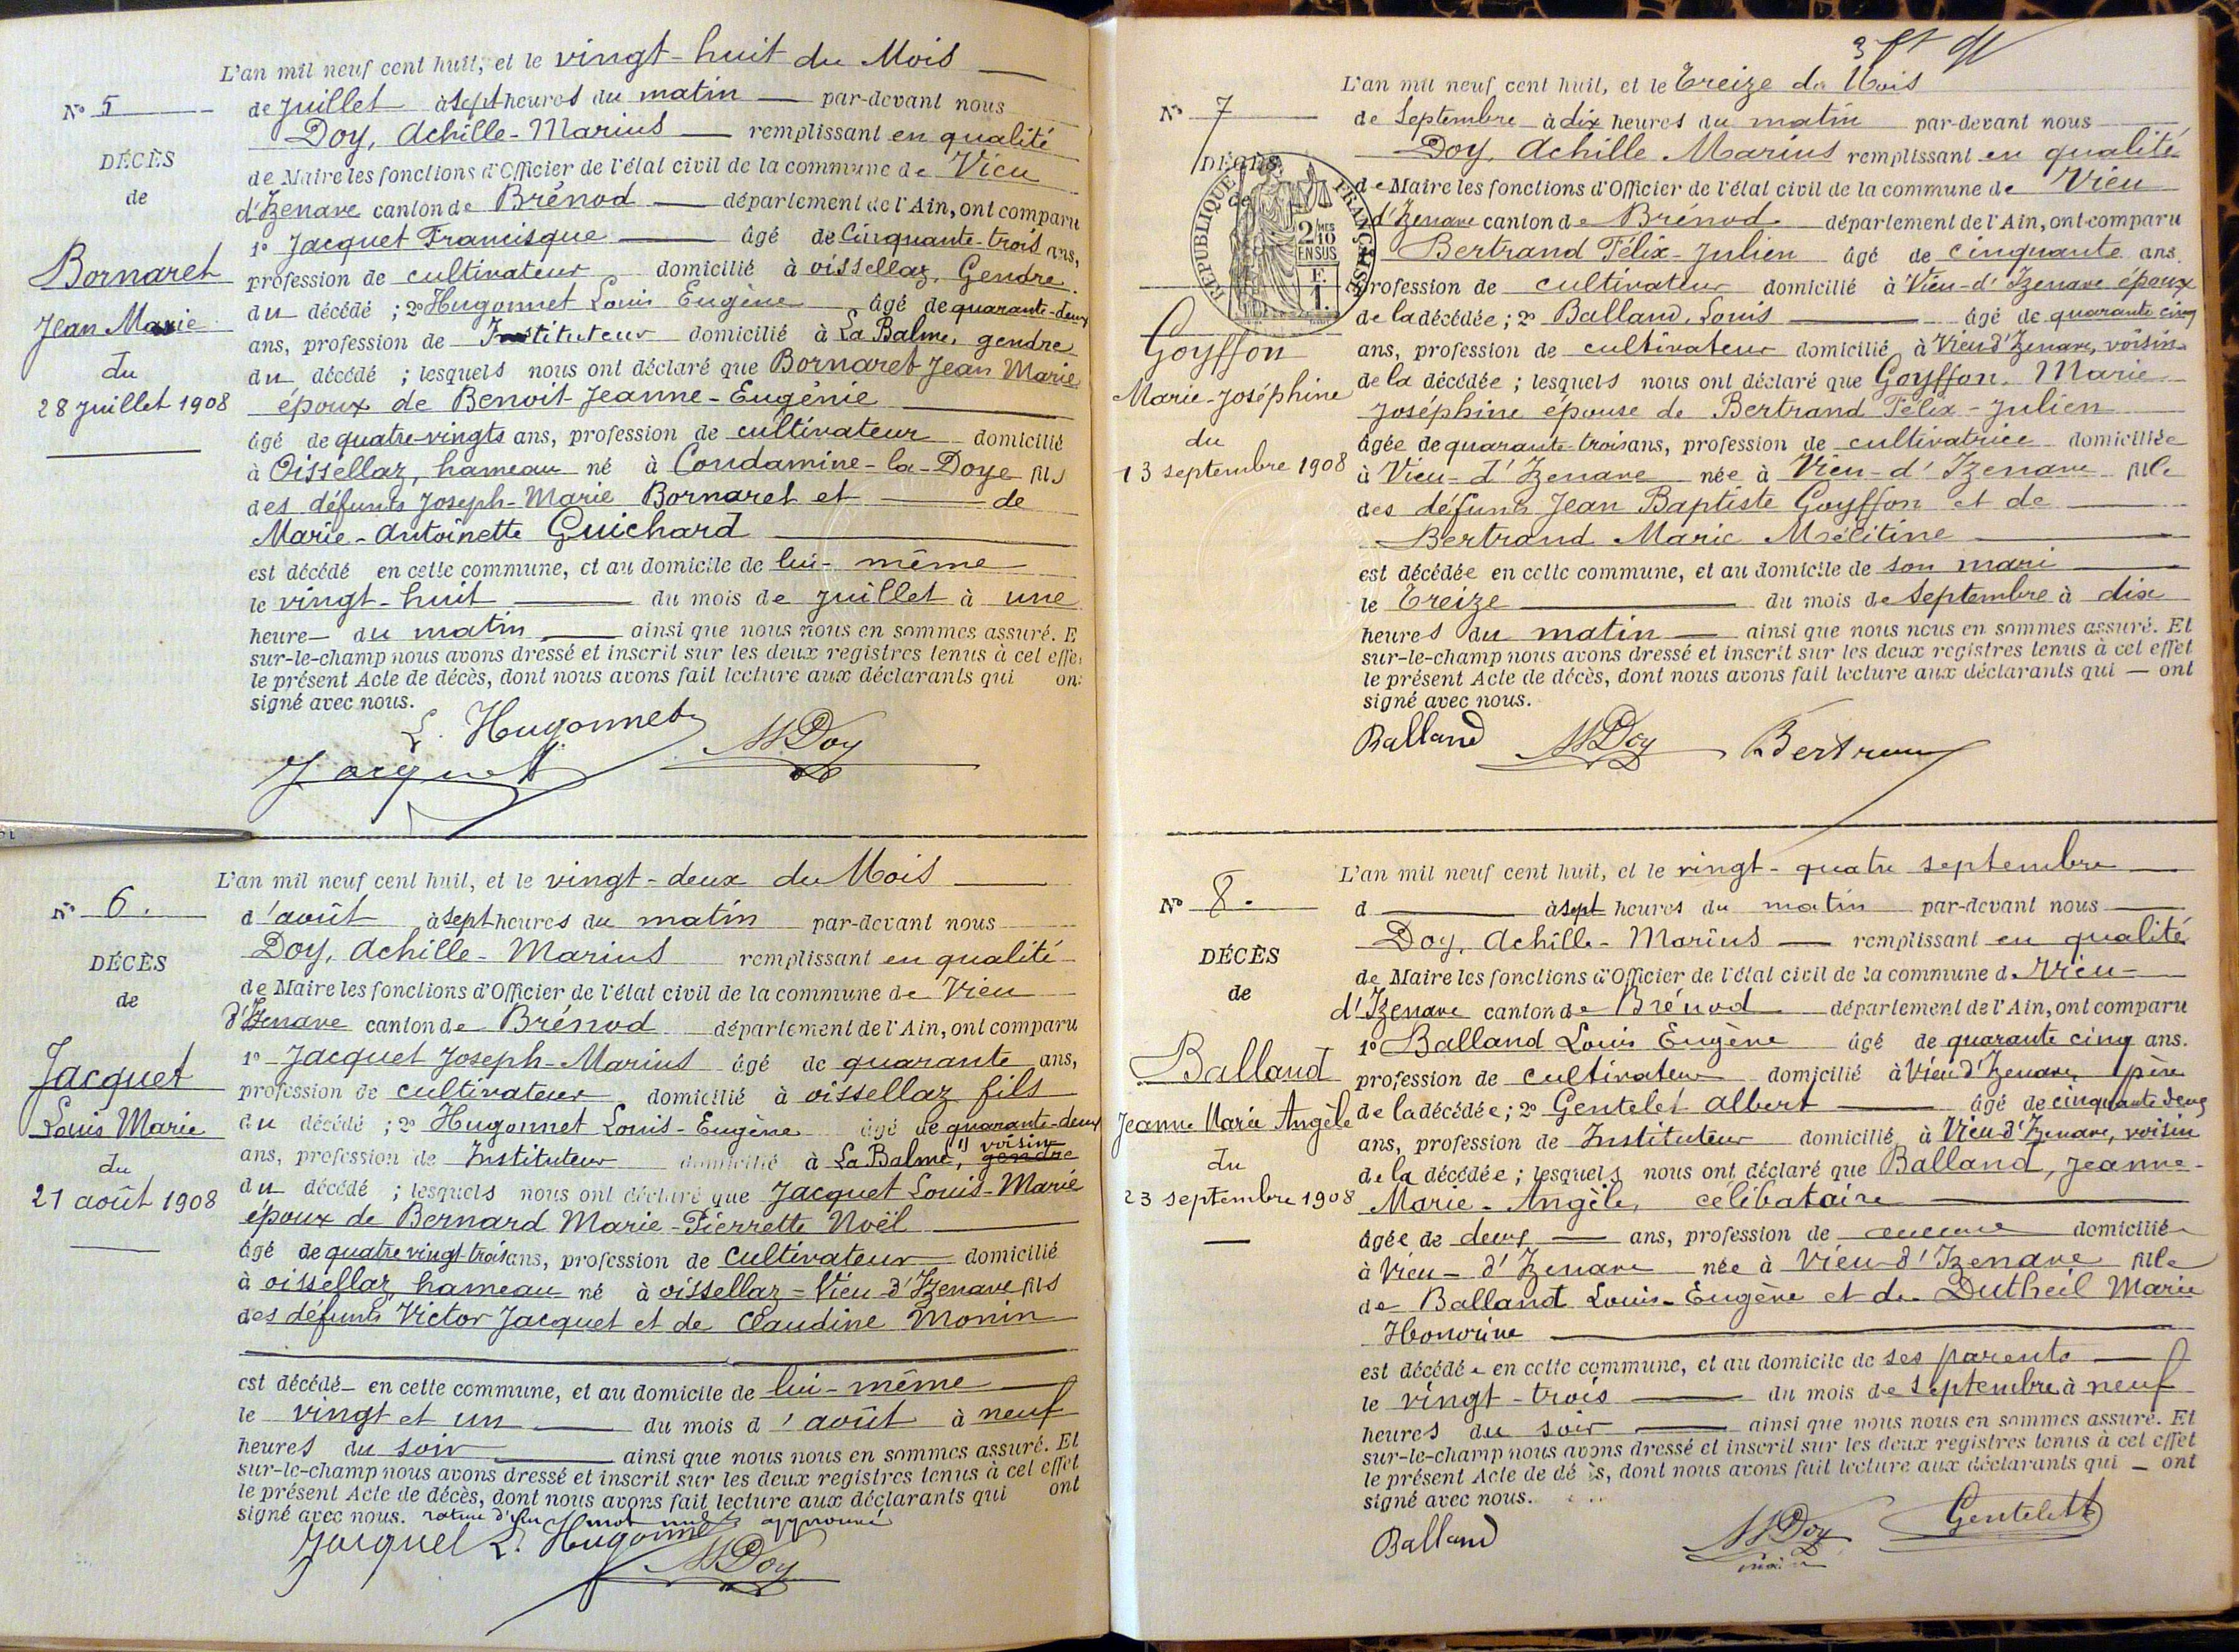 L'an mil neuf cent huit, et le vingt-huit du Mois
N° 5
de Juillet à sept heures du matin par-devant nous
Doy, Achille-Marius remplissant en qualité
DÉCÈS
de Maire les fonctions d'Officier de l'état civil de la commune de Vieu
de
d'Izenave canton de Brénod département de l'Ain, ont comparu
1° Jacquet Francisque âgé de Cinquante-trois ans,
Bornaret
profession de cultivateur domicilié à oissellaz, Gendre
du décédé ; 2° Hugonnet Louis Eugène âgé de quarante-deux
Jean Marie
ans, profession de Instituteur domicilié à La Balme, gendre
du
du décédé ; lesquels nous ont déclaré que Bornaret Jean Marie
28 Juillet 1908
époux de Benoit Jeanne-Eugénie
âgé de quatre-vingts ans, profession de cultivateur domicilié
à Oissellaz, hameau né à Condamine-la-Doye fils
des défunts Joseph-Marie Bornaret et de
Marie-Antoinette Guichard
est décédé en cette commune, et au domicile de lui-même
le vingt-huit du mois de Juillet à une
heure du matin ainsi que nous nous en sommes assuré. E
sur-le-champ nous avons dressé et inscrit sur les deux registres tenus à cet effet
le présent Acte de décès, dont nous avons fait lecture aux déclarants qui on
signé avec nous.
L. Hugonnet
MDoy
Jacquet
L'an mil neuf cent huit, et le vingt-deux du Mois
N° 6.
d'août à sept heures du matin par-devant nous
Doy, Achille-Marius remplissant en qualité
DÉCÈS
de Maire les fonctions d'Officier de l'état civil de la commune de Vieu
de
d'Izenave canton de Brénod département de l'Ain, ont comparu
1° Jacquet Joseph-Marius âgé de quarante ans,
Jacquet
profession de cultivateur domicilié à oissellaz fils
Louis Marie
du décédé ; 2° Hugonnet Louis-Eugène âgé de quarante-deux
voisin
ans, profession de Instituteur domicilié à La Balme, gendre
du
du décédé ; lesquels nous ont déclaré que Jacquet Louis-Marie
21 août 1908
époux de Bernard Marie-Pierrette Noël
âgé de quatre vingt trois ans, profession de cultivateur domicilié
à oissellaz hameau né à oissellaz=Vieu-d'Izenave fils
des défunts Victor Jacquet et de Claudine Monin
est décédé en cette commune, et au domicile de lui-même
le vingt et un du mois d'août à neuf
heures du soir ainsi que nous nous en sommes assuré. Et
sur-le-champ nous avons dressé et inscrit sur les deux registres tenus à cet effet
le présent Acte de décès, dont nous avons fait lecture aux déclarants qui ont
signé avec nous. rature d'un mot nul approuvé
Jacquet L. Hugonnet
MDoy
L'an mil neuf cent huit, et le Treize du Mois
N° 7
de Septembre à dix heures du matin par-devant nous
Doy, Achille Marius remplissant en qualité
DÉCÈS
de Maire les fonctions d'Officier de l'état civil de la commune de Vieu
de
RÉPUBLIQUE FRANÇAISE
2/10 MES EN SUS
F. 1.
d'Izenave canton de Brénod département de l'Ain, ont comparu
Bertrand Félix-Julien âgé de cinquante ans,
profession de cultivateur domicilié à Vieu-d'Izenave époux
de la décédée ; 2° Balland, Louis âgé de quarante cinq
Goyffon
ans, profession de cultivateur domicilié à Vieu d'Izenave, voisin
Marie-Joséphine
de la décédée ; lesquels nous ont déclaré que Goyffon, Marie
Joséphine épouse de Bertrand Félix-Julien
du
âgée de quarante-trois ans, profession de cultivatrice domiciliée
13 septembre 1908
à Vieu-d'Izenave née à Vieu-d'Izenave fille
des défunts Jean Baptiste Goyffon et de
Bertrand Marie Mélitine
est décédée en cette commune, et au domicile de son mari
le Treize du mois de Septembre à dix
heures du matin ainsi que nous nous en sommes assuré. Et
sur-le-champ nous avons dressé et inscrit sur les deux registres tenus à cet effet
le présent Acte de décès, dont nous avons fait lecture aux déclarants qui — ont
signé avec nous.
Balland MDoy Bertrand
L'an mil neuf cent huit, et le vingt-quatre septembre
N° 8.
d à sept heures du matin par-devant nous
Doy, Achille-Marius remplissant en qualité
DÉCÈS
de Maire les fonctions d'Officier de l'état civil de la commune d Vieu-
de
d'Izenave canton de Brénod département de l'Ain, ont comparu
1° Balland Louis Eugène âgé de quarante cinq ans.
Balland
profession de cultivateur domicilié à Vieu d'Izenave, père
Jeanne Marie Angèle
de la décédée ; 2° Gentelet Albert âgé de cinquante deux
ans, profession de Instituteur domicilié à Vieu-d'Izenave, voisin
du
de la décédée ; lesquels nous ont déclaré que Balland, Jeanne-
23 septembre 1908
Marie-Angèle, célibataire
âgée de deux ans, profession de aucune domiciliée
à Vieu-d'Izenave née à Vieu-d'Izenave fille
de Balland Louis-Eugène et de Dutheil Marie
Honorine
est décédée en cette commune, et au domicile de ses parents
le vingt-trois du mois de Septembre à neuf
heures du soir ainsi que nous nous en sommes assuré. Et
sur-le-champ nous avons dressé et inscrit sur les deux registres tenus à cet effet
le présent Acte de dé ès, dont nous avons fait lecture aux déclarants qui — ont
signé avec nous.
Balland MDoy Gentelet